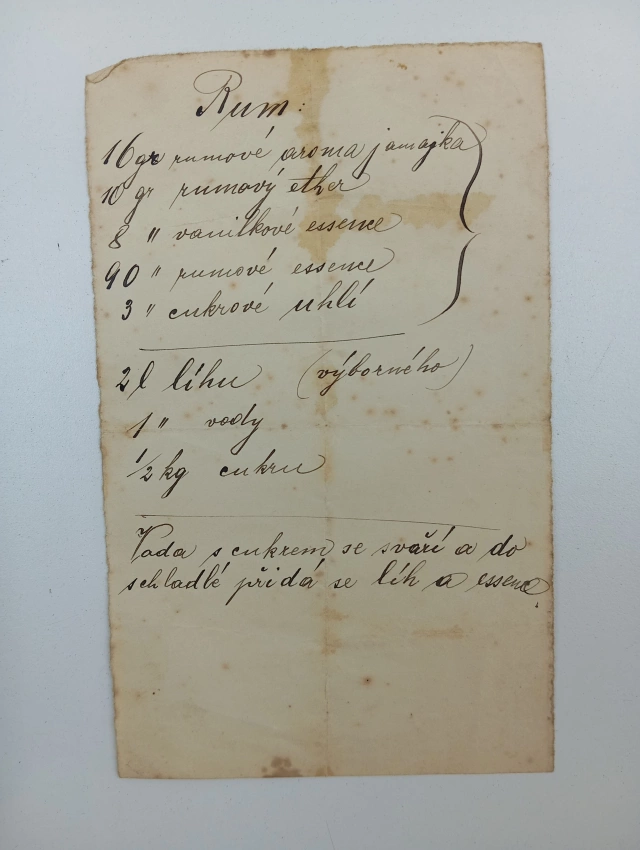 Rum:
16 gr rumové aroma jamajka
10 gr rumový ether
8 " vanilkové essence
90 " rumové essence
3 " cukrové uhlí
2 l líhu (výborného)
1 " vody
1/2 kg cukru
Voda s cukrem se svaří a do
schladlé přidá se líh a essence.